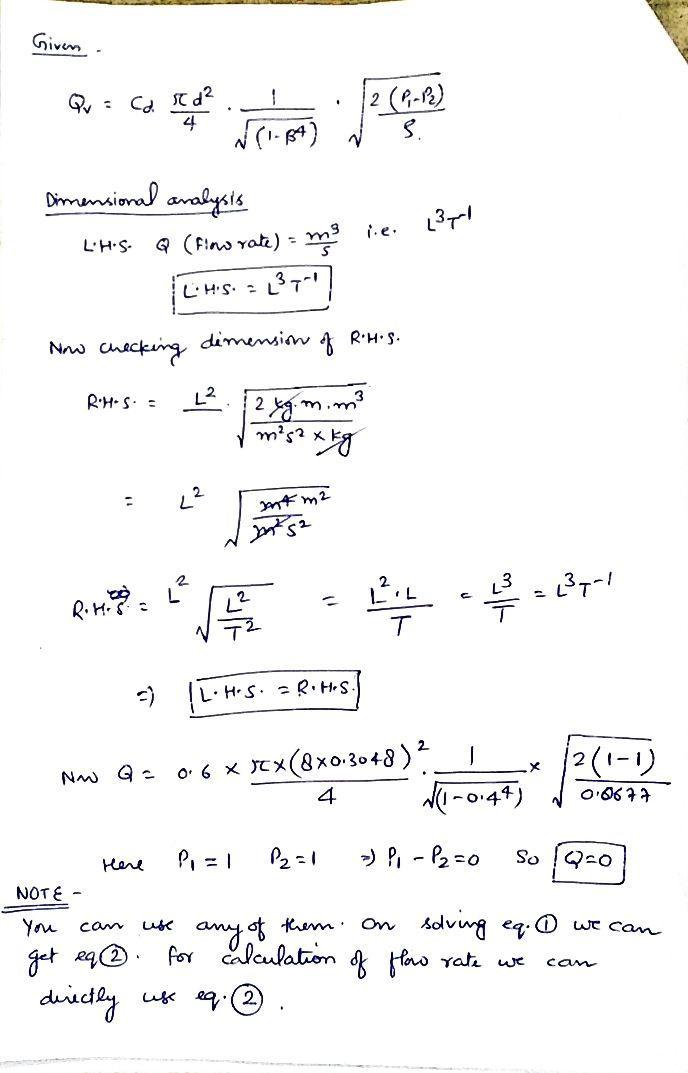 Given -
Qv = Cd πd²/4 · 1/√(1-β⁴) · √(2(P₁-P₂)/ρ)
Dimensional analysis
L.H.S. Q (flow rate) = m³/s i.e. L³T⁻¹
L.H.S. = L³T⁻¹
Now checking dimension of R.H.S.
R.H.S. = L² · √(2 kg.m.m³/m²s² × kg)
= L² √(m⁴ m²/m² s²)
R.H.S. = L² √(L²/T²) = L².L/T = L³/T = L³T⁻¹
⇒ L.H.S. = R.H.S.
Now Q = 0.6 × π×(8×0.3048)²/4 · 1/√(1-0.4⁴) × √(2(1-1)/0.0677)
Here P₁ = 1 P₂ = 1 ⇒ P₁ - P₂ = 0 So Q=0
NOTE -
You can use any of them. On solving eq. ① we can
get eq ②. for calculation of flow rate we can
directly use eq. ② .